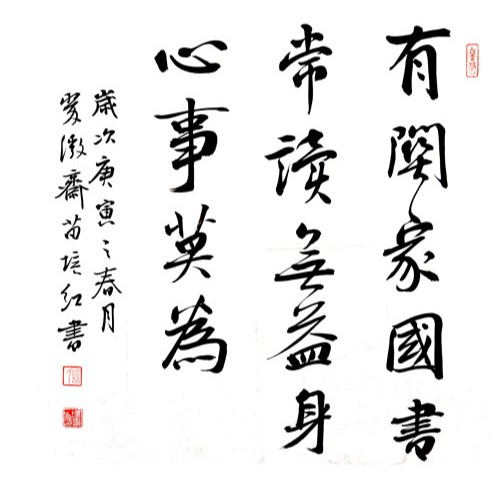 有關家國書
常讀無益身
心事莫為
歲次庚寅之春月
齋苗培紅書